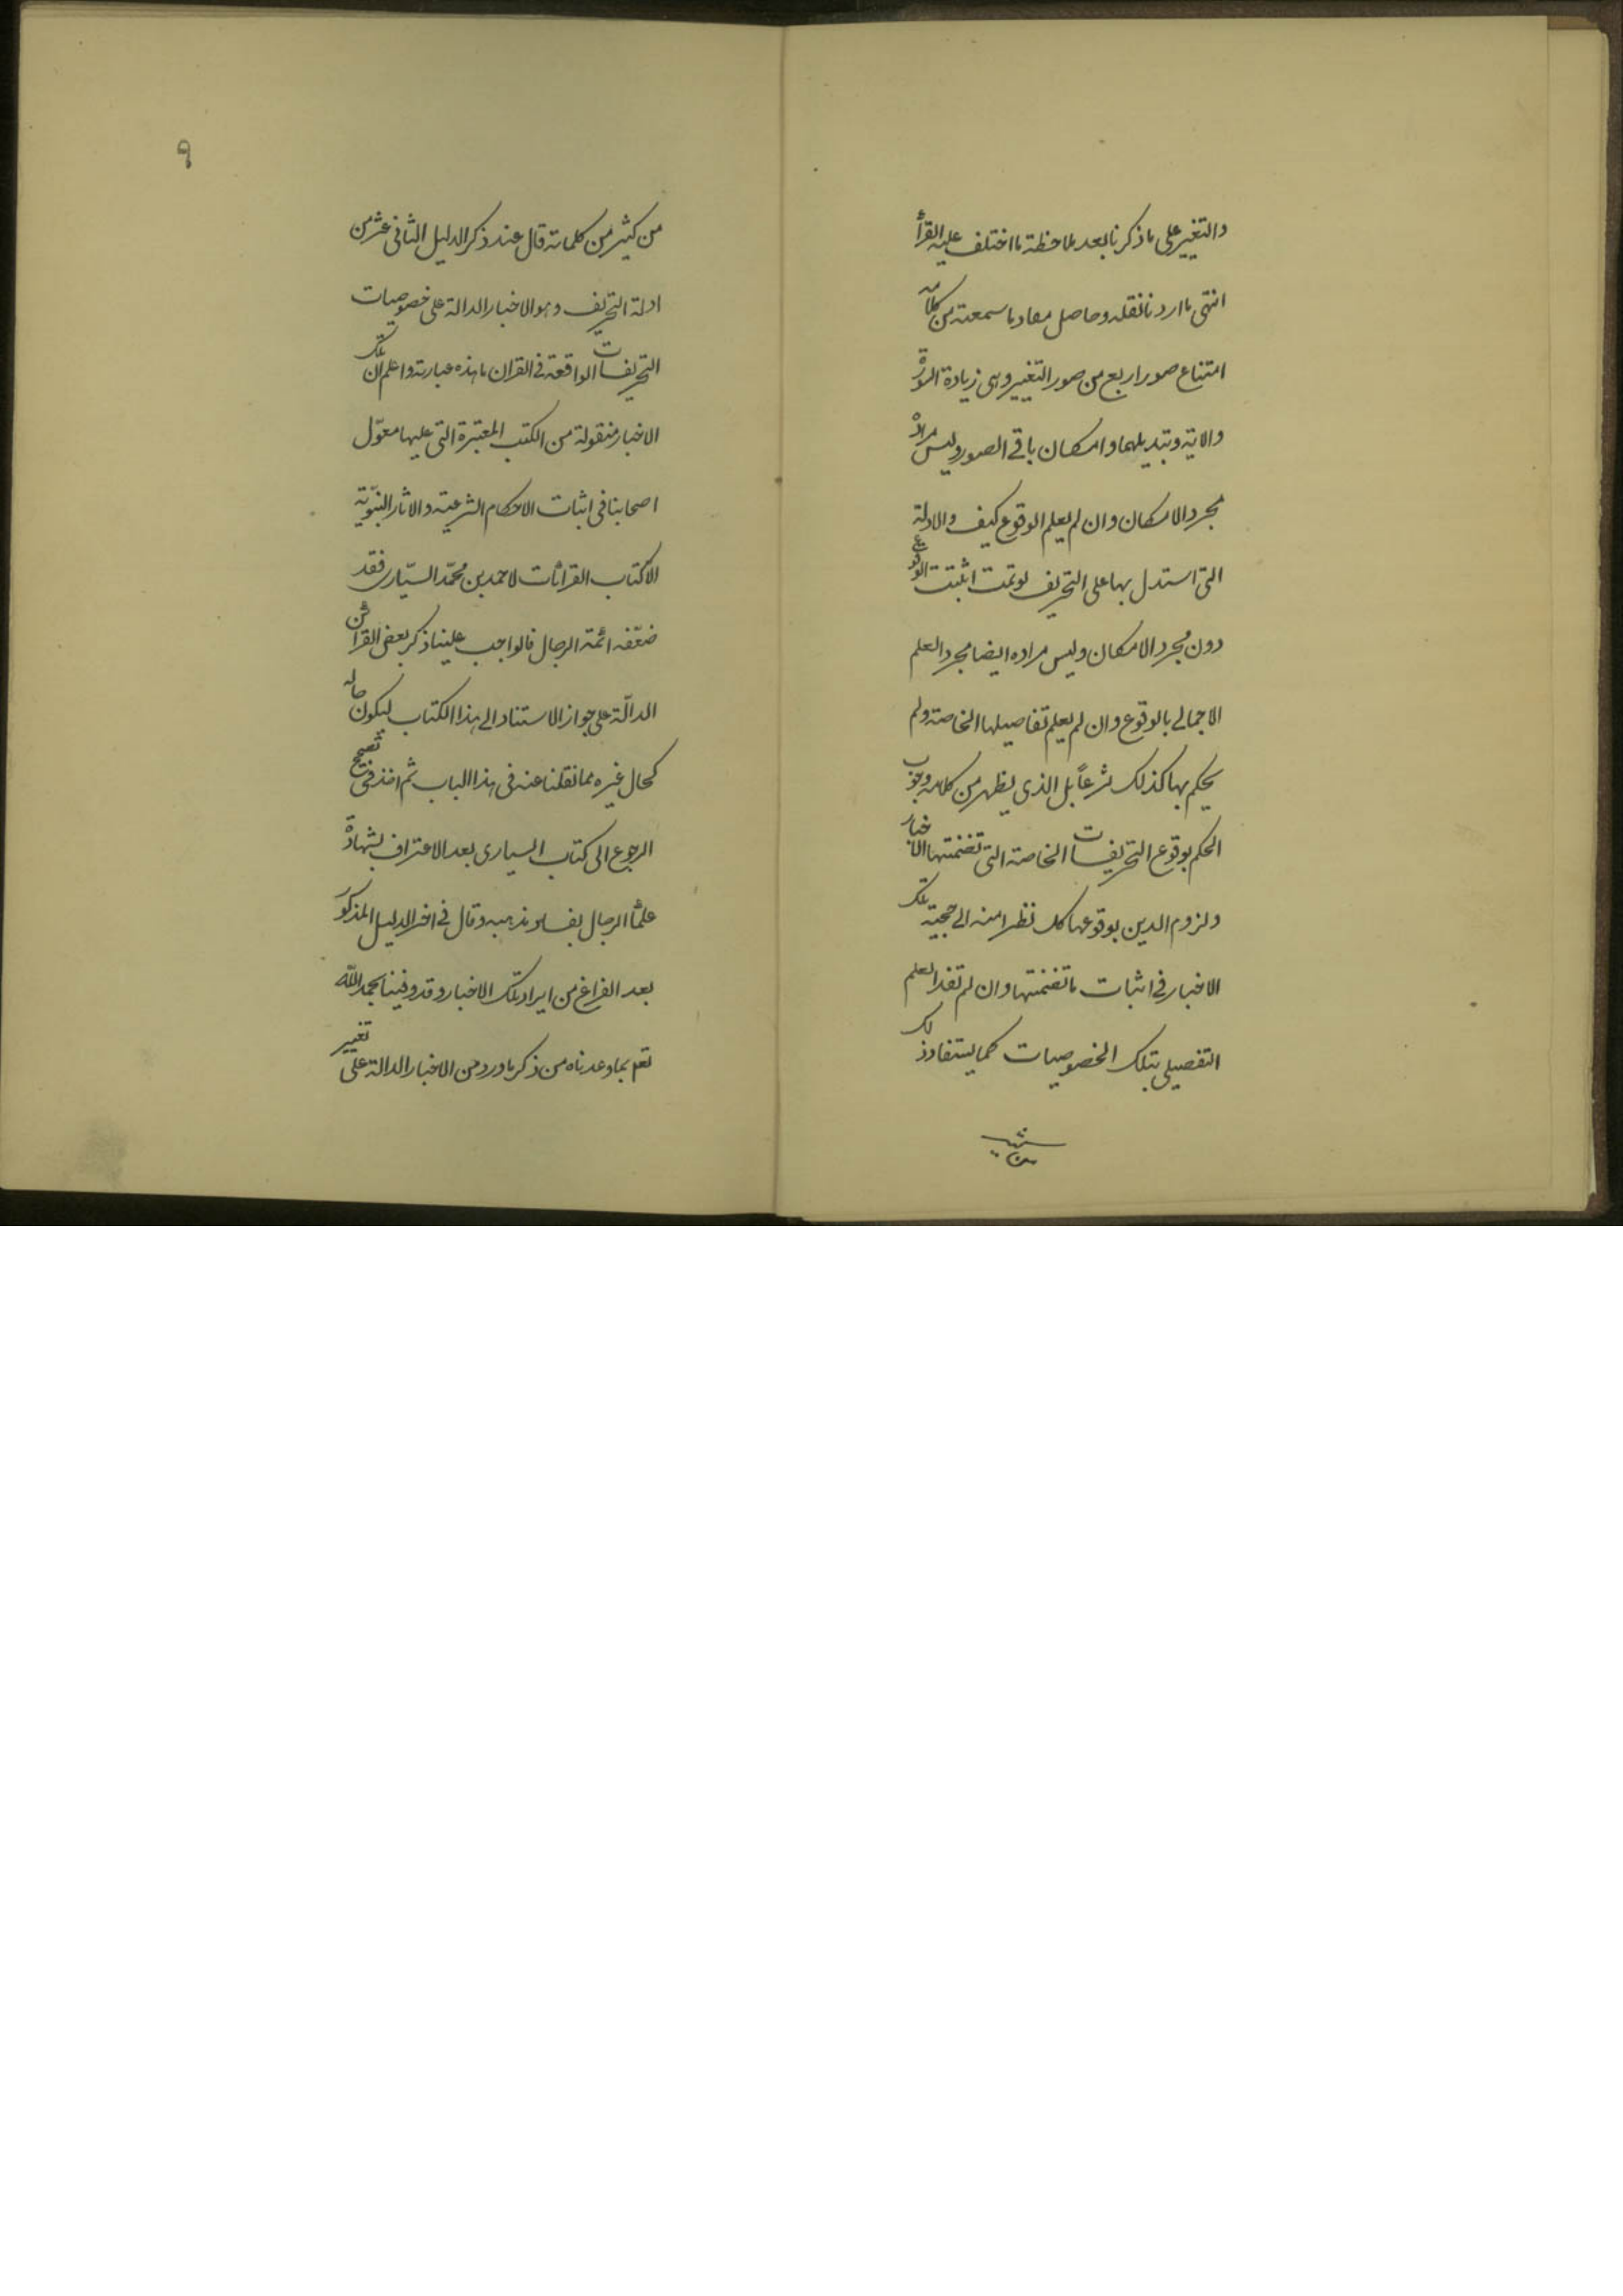 والتغيير على ما ذكرنا بعد ملاحظة ما اختلف عليه القرأ
انتهى ما اردنا نقله وحاصل مفاد ما سمعته من كلامه
امتناع صور اربع من صور التغيير وهى زيادة السورة
والاية وتبديلهما وامكان باقي الصور وليس مراده
مجرد الامكان وان لم يعلم الوقوع كيف والادلة
التى استدل بها على التحريف لو تمت اثبتت الوقوع
دون مجرد الامكان وليس مراده ايضا مجرد العلم
الاجمالي بالوقوع وان لم يعلم تفاصيلها الخاصة ولم
يحكم بها كذلك شرعاً بل الذى يظهر من كلامه وجوب
الحكم بوقوع التحريفات الخاصة التى تضمنتها الاخبار
ولزوم التدين بوقوعها كك نظرا منه الى حجية تلك
الاخبار في اثبات ما تضمنتها وان لم تفد العلم
التفصيلى بتلك الخصوصيات كما يستفاد ذلك
من كثير من كلماته قال عند ذكر الدليل الثانى عشر من
ادلة التحريف وهو الاخبار الدالة على خصوصيات
التحريفات الواقعة في القران ما هذه عبارته واعلم ان تلك
الاخبار منقولة من الكتب المعتبرة التى عليها معوّل
اصحابنا فى اثبات الاحكام الشرعية والاثار النبوّية
الا كتاب القرائات لاحمد بن محمّد السيّارى فقد
ضعّفه ائمة الرجال فالواجب علينا ذكر بعض القرائن
الدالّة على جواز الاستناد الى هذا الكتاب ليكون حاله
كحال غيره مما نقلنا عنه فى هذا الباب ثم اخذ في تصحيح
الرجوع الى كتاب السيارى بعد الاعتراف بشهادة
علمأ الرجال بفساد مذهبه وقال في اخر الدليل المذكور
بعد الفراغ من ايراد تلك الاخبار وقد وفينا بحمد اللّه
تعم بما وعدناه من ذكر ما ورد من الاخبار الدالة على تغيير